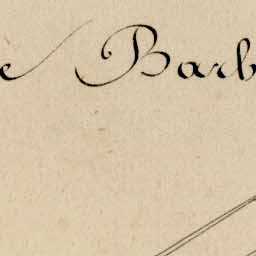 e Barb